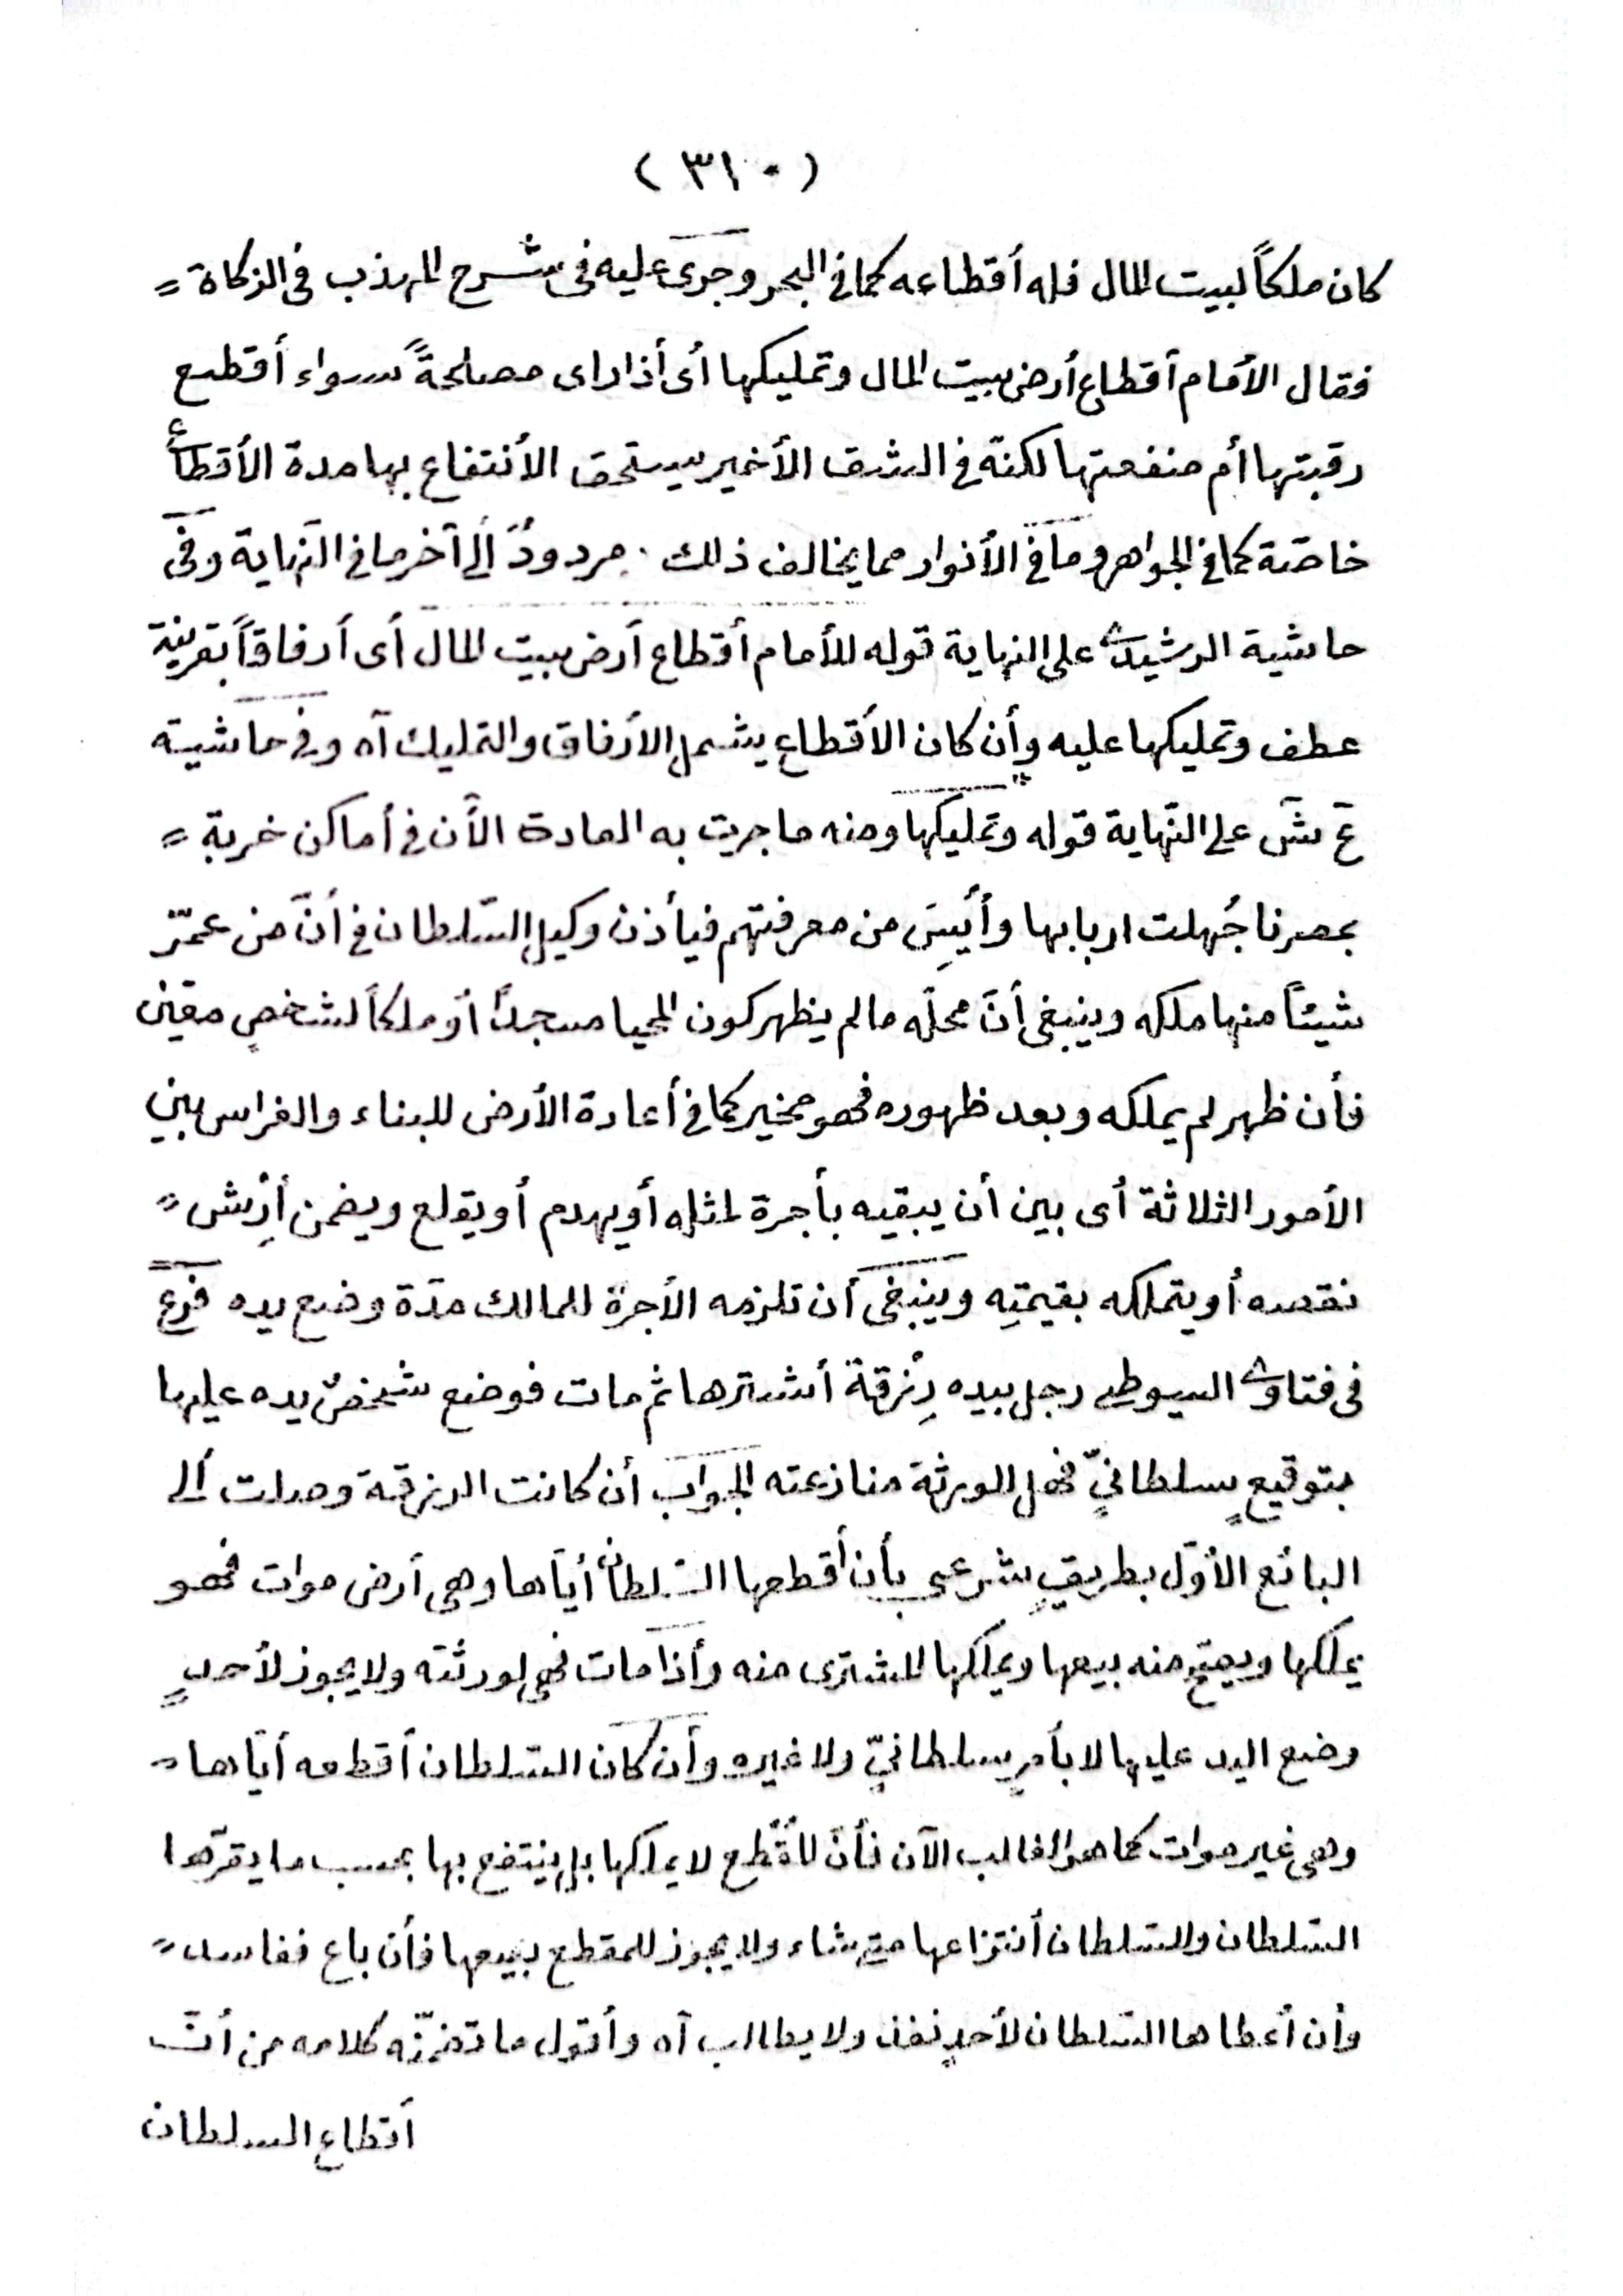 ( ٣١٠ )
كان ملكاً لبيت المال فله أقطاعه كما فى البحر وجرى عليه فى شرح المهذب فى الزكاة =
فقال الأمام أقطاع أرض بيت المال وتمليكها أى أذا راى مصلحةً سواء أقطع
رقبتها أم منفعتها لكنّه فى الشق الأخير يستحق الأنتفاع بها مدة الأقطاع
خاصّة كما فى الجواهر وما فى الأنوار مما يخالف ذلك . مردودٌ ألى آخر ما فى النّهاية وفى
حاشية الرشيدى على النهاية قوله للأمام أقطاع أرض بيت المال أى أرفاقاً بقرينة
عطف وتمليكها عليه وأن كان الأقطاع يشمل الأرفاق والتمليك آه وفى حاشية
عَ شَ على النّهاية قوله وتمليكها ومنه ما جريت به العادة الآن فى أماكن خربة =
بمصرنا جُهلت اربابها وأُيِسَ من معرفتهم فيأذن وكيل السّلطان فى أنّ من عمّر
شيئاً منها ملكه وينبغى أنّ محلّه ما لم يظهر كون المحيا مسجداً أو ملكاً لشخصٍ معيّن
فأن ظهر لم يملكه وبعد ظهوره فهو مخير كما فى أعارة الأرض للبناء والغراس بين
الأمور الثلاثة أى بين أن يبقيه بأجرة لمثله أو يهدم أو يقلع ويضمن أرش =
نقصه أو يتملكه بقيمتِه وينبغى أن تلزمه الأجرة للمالك مدّة وضع يده فرع
فى فتاوى السيوطى رجل بيده رِزقة أشترها ثم مات فوضع شخصٌ يده عليها
بتوقيعٍ سلطانيٍّ فهل للورثة منازعته الجواب أن كانت الرزقة وصلت ألى
البائع الأوّل بطريقٍ شرعى بأن أقطعها السّلطان أيّاها وهى أرض موات فهو
يملكها ويصحّ منه بيعها ويملكها المشترى منه وأذا مات فهى لورثته ولا يجوز لأحدٍ
وضع اليد عليها لا بأمرٍ سلطانيٍّ ولا غيره وأن كان السّلطان أقطعه أيّاها =
وهى غير موات كما هو الغالب الآن فأنّ المُقْطَع لا يملكها بل ينتفع بها بحسب ما يقرّها
السّلطان وللسّلطان أنتزاعها متى شاء ولا يجوز للمقطع بيعها فأن باع ففاسد =
وأن أعطاها السّلطان لأحدٍ نفذ ولا يطالب آه وأقول ما تضمّنه كلامه من أنّ
أقطاع السلطان